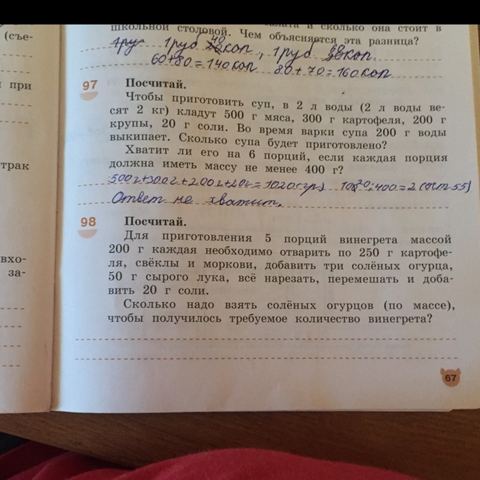 (съе-
школьной столовой. Чем объясняется эта разница?
1 руб коп, 1 руб коп.
60+80=140 коп 80+70=160 коп
97
Посчитай.
Чтобы приготовить суп, в 2 л воды (2 л воды ве-
сят 2 кг) кладут 500 г мяса, 300 г картофеля, 200 г
крупы, 20 г соли. Во время варки супа 200 г воды
выкипает. Сколько супа будет приготовлено?
Хватит ли его на 6 порций, если каждая порция
должна иметь массу не менее 400 г?
500г+300г+200г+20г=1020(гр) 1020:400=2(ост 55)
Ответ не хватит.
98
Посчитай.
Для приготовления 5 порций винегрета массой
200 г каждая необходимо отварить по 250 г картофе-
ля, свёклы и моркови, добавить три солёных огурца,
50 г сырого лука, всё нарезать, перемешать и доба-
вить 20 г соли.
Сколько надо взять солёных огурцов (по массе),
чтобы получилось требуемое количество винегрета?
67
при
трак
вхо-
за-